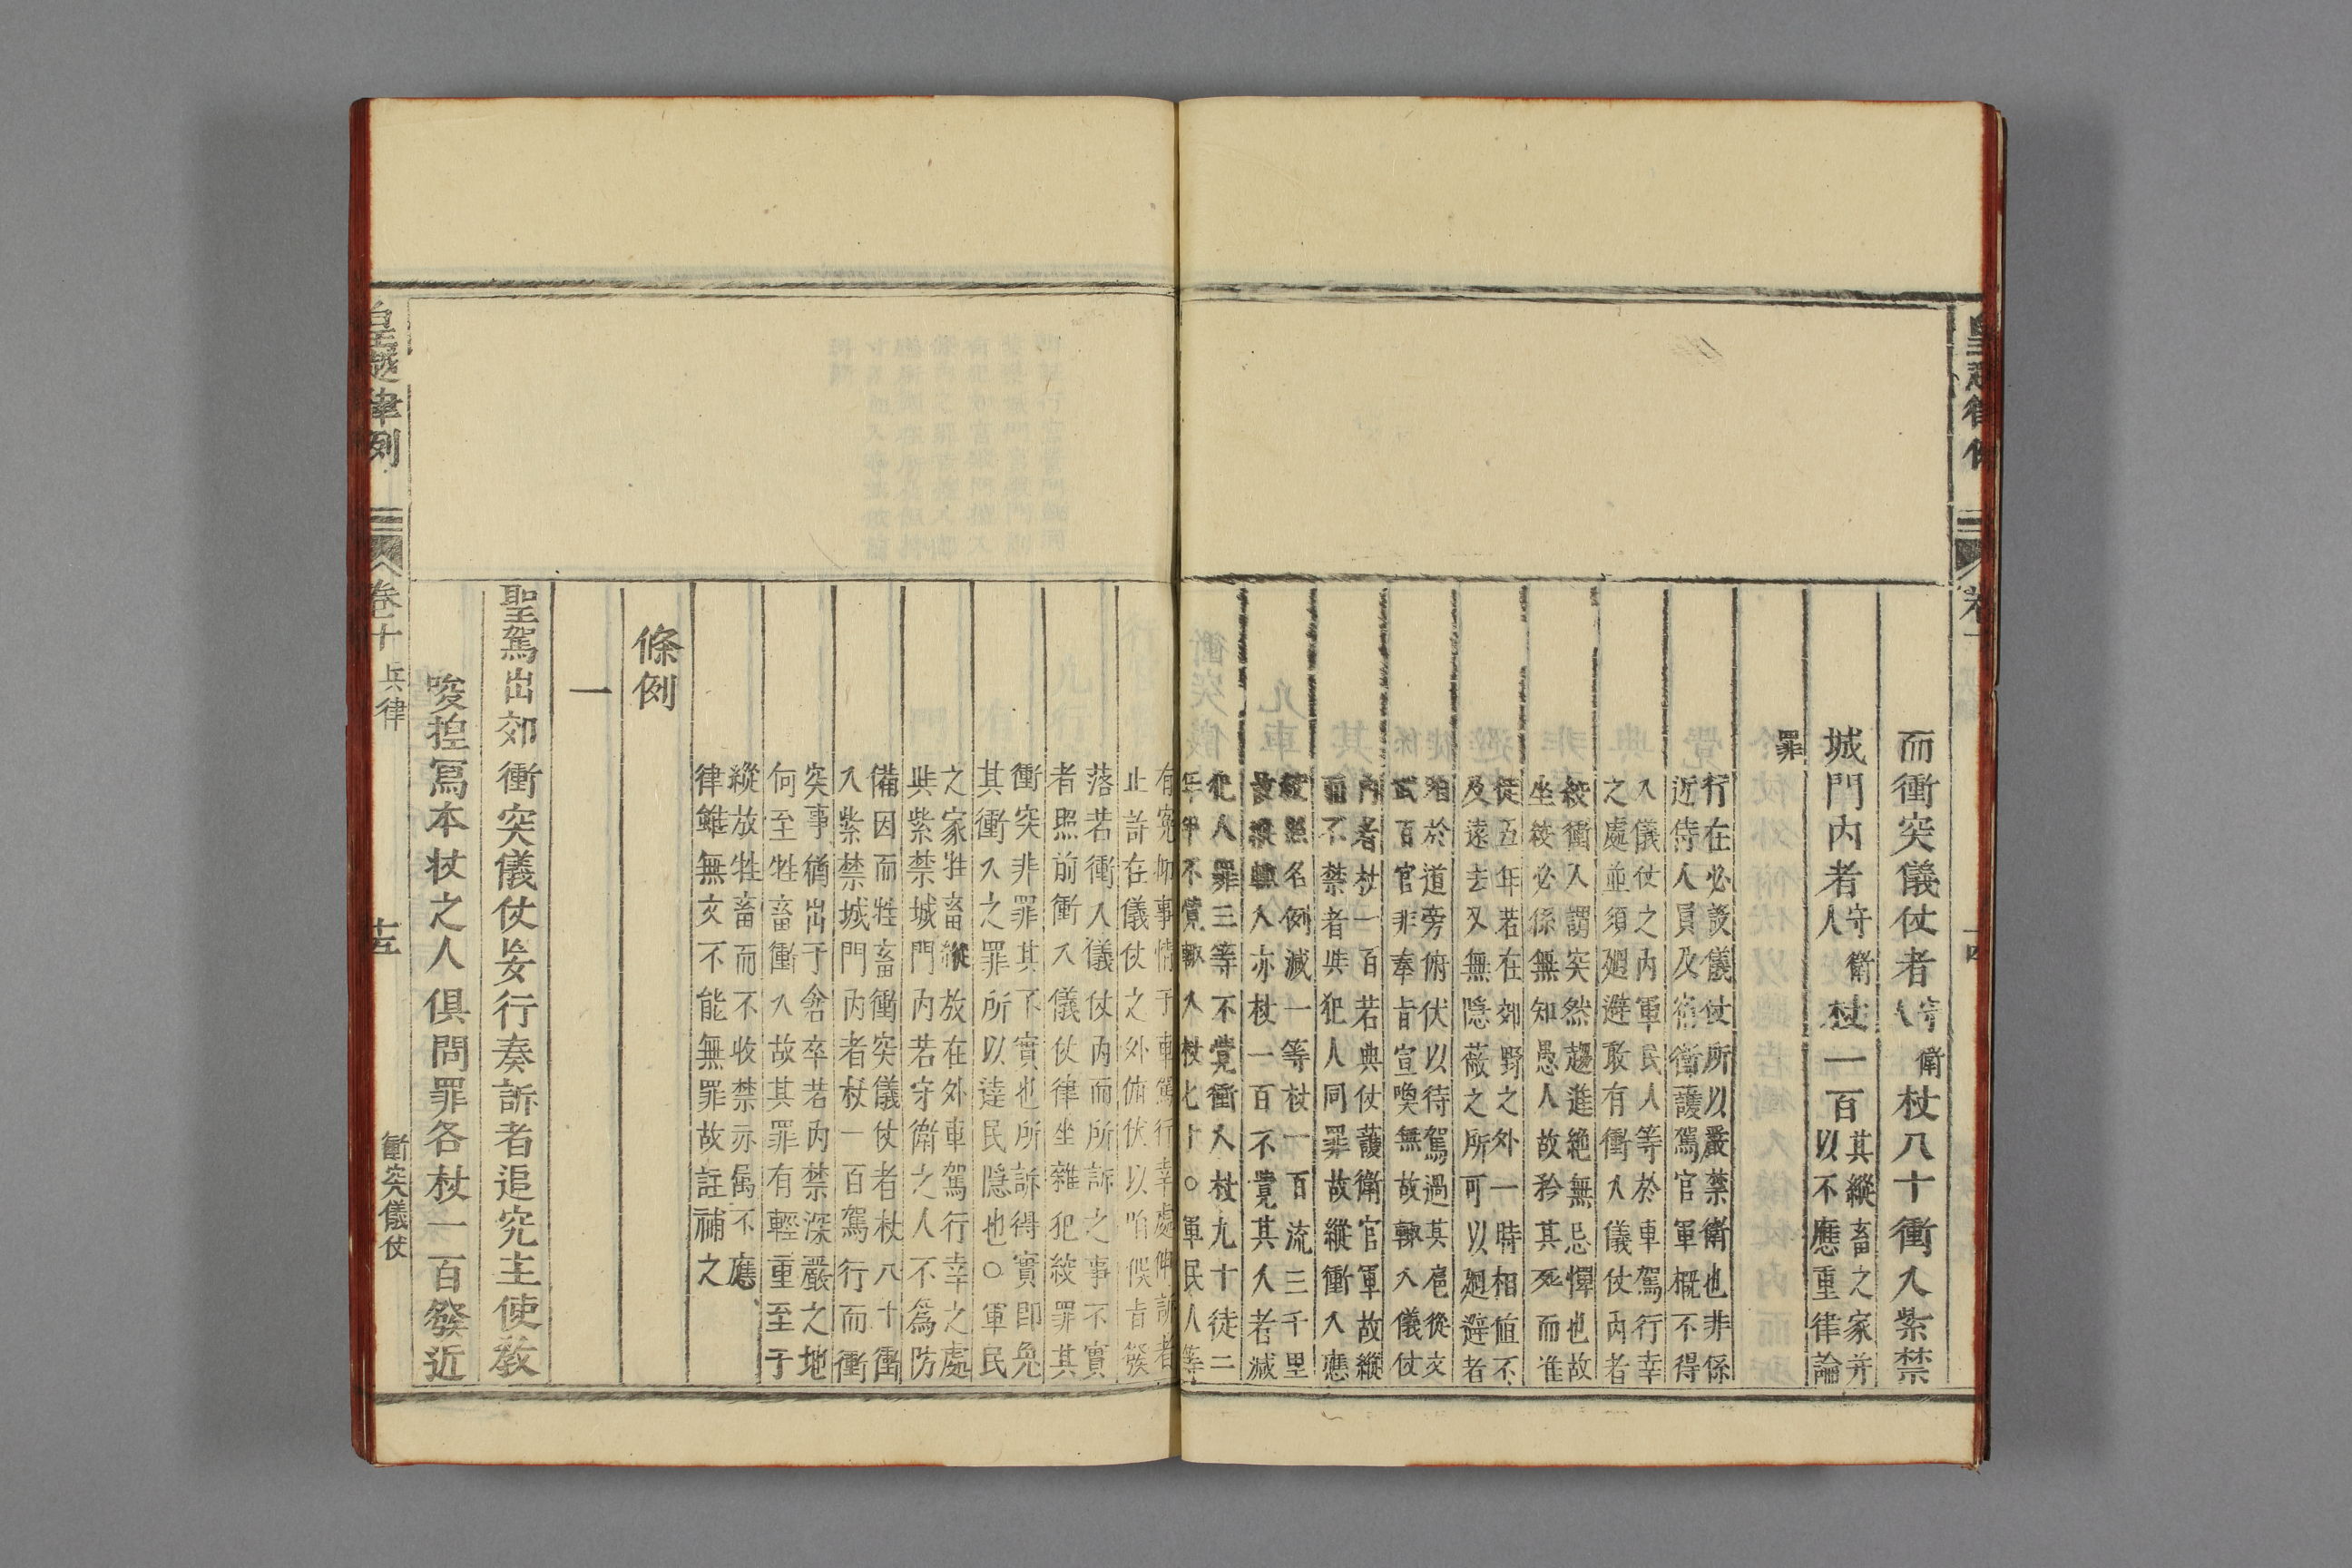 而衝突儀仗者守衛人杖八十衝入紫禁
城門內者守衛人杖一百其縱畜之家并以不應重律論
罪
行在必設儀仗所以嚴禁衛也非係
近侍人員及宿衛護駕官軍概不得
入儀仗之內軍民人等於車駕行幸
之處並須廻避敢有衝入儀仗內者
絞衝入謂突然趨進絶無忌憚也故
坐絞必係無知愚人故矜其死而准
徒五年若在郊野之外一時相值不
及遠去又無隱蔽之所可以廻避者
於道旁俯伏以待駕過其扈從文
武百官非奉旨宣喚無故輒入儀仗
內者杖一百若典仗護衛官軍故縱
而不禁者與犯人同罪故縱衝入應
絞照名例減一等杖一百流三千里
故縱輒入亦杖一百不覺其人者減
犯人罪三等不覺衝入杖九十徒二
年半不覺輒入杖七十○軍民人等
有冤抑事情于車駕行幸處伸訴者
止許在儀仗之外俯伏以俟旨發
落若衝入儀仗內而所訴之事不實
者照前衝入儀仗律坐雜犯絞罪其
衝突非罪其不實也所訴得實即免
其衝入之罪所以達民隱也○軍民
之家牲畜縱放在外車駕行幸之處
與紫禁城門內若守衛之人不爲防
備因而牲畜衝突儀仗者杖八十衝
入紫禁城門內者杖一百駕行而衝
突事猶出于倉卒若內禁深嚴之地
何至牲畜衝入故其罪有輕重至于
縱放牲畜而不收禁亦屬不應
律雖無文不能無罪故註補之
條例
一
聖駕出郊衝突儀仗妄行奏訴者追究主使教
唆捏寫本杖之人俱問罪各杖一百發近
皇越律例
卷十
兵律
十五
衝突儀仗